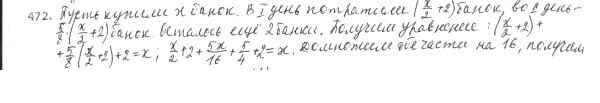 472. Пусть купили x банок. В I день потратили (x/2 +2) банок, во II день -
5/8 (x/2 +2) банок. Осталось ещё 2 банки. Получим уравнение: (x/2 +2) +
+ 5/8 (x/2 +2) + 2 = x; x/2 + 2 + 5x/16 + 5/4 + 2 = x. Домножим обе части на 16, получим